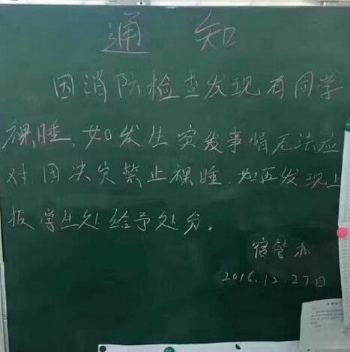 通 知
因消防检查发现有同学
裸睡,如发生突发事情无法应
对因决定禁止裸睡,如再发现上
报学生处给予处分。
宿管办
2016.12.27日